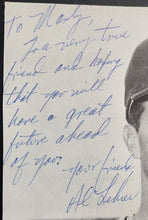 To Marty,
for a very true
friend and hoping
that you will
have a great
future ahead
of you.
your friend,
Al